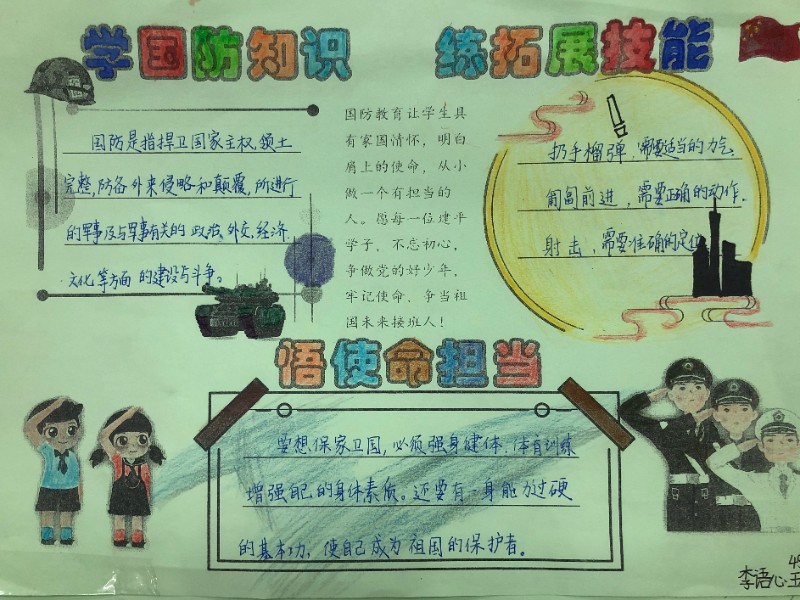 学国防知识
练拓展技能
国防是指捍卫国家主权、领土
完整,防备外来侵略和颠覆,所进行
的军事及与军事有关的政治、外交、经济、
文化等方面的建设与斗争。
国防教育让学生具
有家国情怀，明白
肩上的使命，从小
做一个有担当的
人。愿每一位建平
学子，不忘初心，
争做党的好少年，
牢记使命，争当祖
国未来接班人！
扔手榴弹，需要适当的力气、
匍匐前进，需要正确的动作、
射击，需要准确的定位
悟使命担当
要想保家卫国,必须强身健体,体育训练
增强自己的身体素质。还要有一身能力过硬
的基本功，使自己成为祖国的保护者。
李语心